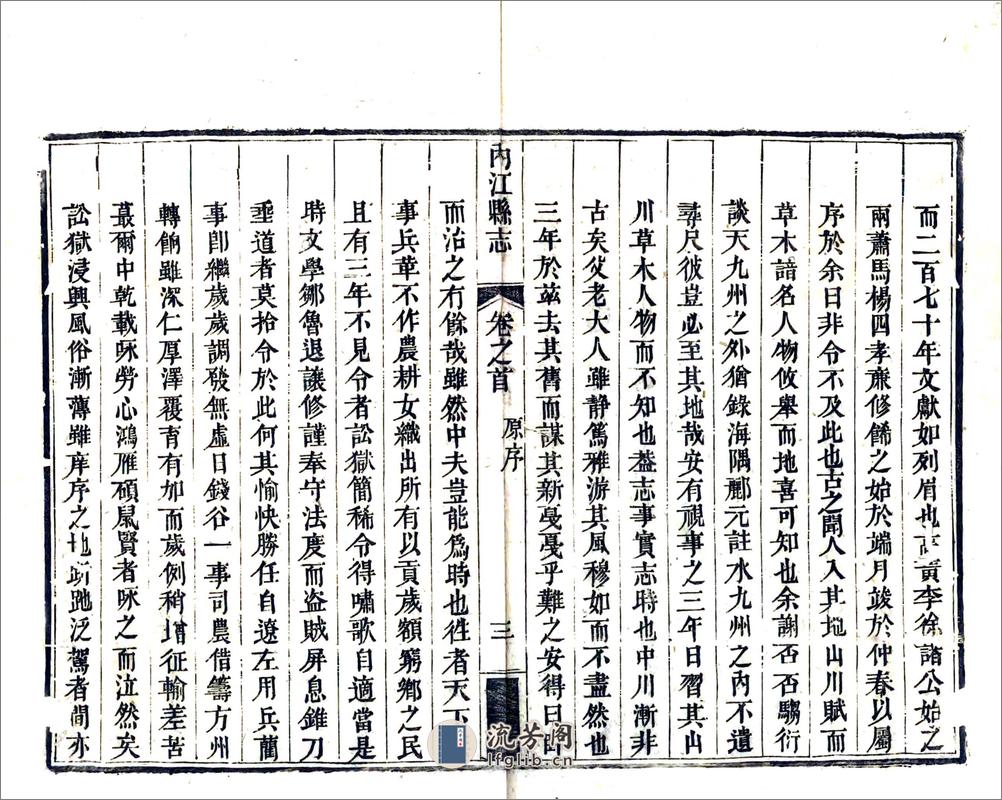 而二百七十年文獻如列眉也高黃李徐諸公始之
兩蕭馬楊四孝亷修餙之始於端月竣於仲春以屬
序於余曰非令不及此也古之聞人入其地山川賦而
草木諳名人物攸舉而地喜可知也余謝否否騶衍
談天九州之外猶錄海隅酈元註水九州之內不遺
尋尺彼豈必至其地哉安有視事之三年日習其山
川草木人物而不知也葢志事實志時也中川漸非
古矣父老大人雖靜篤雅游其風穆如而不盡然也
三年於兹去其舊而謀其新戞戞乎難之安得日臥
內江縣志
卷之首
原序
三
而治之有餘哉雖然中夫豈能爲時也徃者天下
事兵革不作農耕女織出所有以貢歲額窮鄉之民
且有三年不見令者訟獄簡稀令得嘯歌自適當是
時文學鄒魯退讓修謹奉守法度而盗賊屏息錐刀
埀道者莫拾令於此何其愉快勝任自遼左用兵藺
事卽繼歲歲調發無虛日錢谷一事司農借籌方州
轉餉雖深仁厚澤覆育有加而歲例稍增征輸差苦
蕞爾中乾載咏勞心鴻雁碩鼠賢者咏之而泣然矣
訟獄浸興風俗漸薄雖庠序之地跅跑泛駕者間亦
流芳阁
lfglib.cn